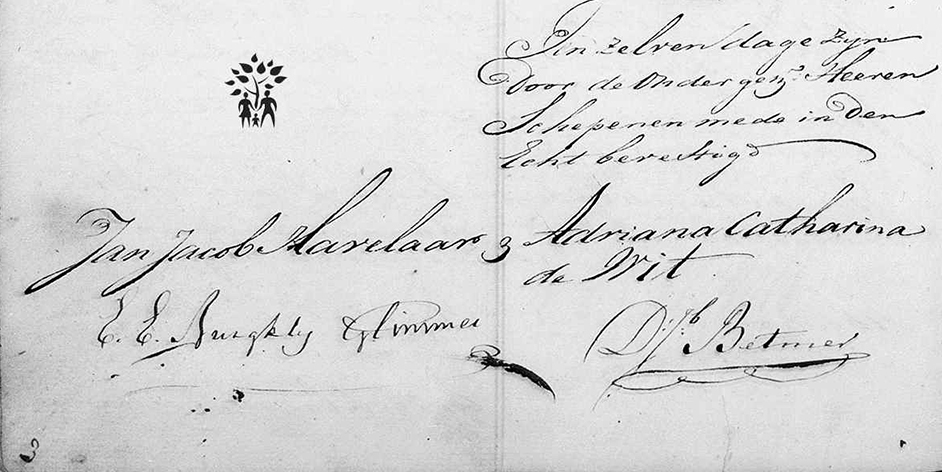 Ten zelven dage zyn
Door de Ondergen: Heeren
Schepenen mede in den
Echt bevestigd
Jan Jacob Havelaar & Adriana Catharina
de Wit
E. E.
Betmer
3